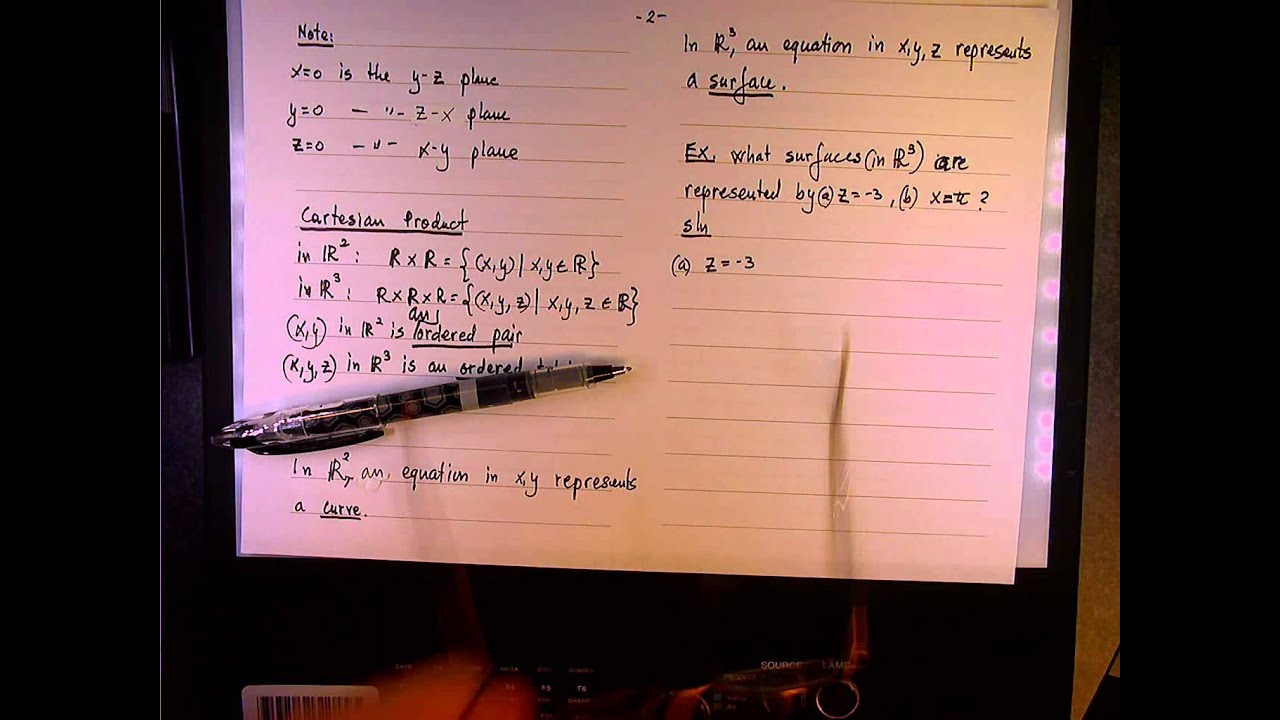 -2-
Note:
x=0 is the y-z plane
y=0 —〃- z-x plane
z=0 — 〃 - x-y plane
Cartesian Product
in ℝ²: R×R = {(x,y) | x,y ∈ ℝ}
in ℝ³: R×R×R = {(x,y,z) | x,y,z ∈ ℝ}
an
(x,y) in ℝ² is ordered pair
(x,y,z) in ℝ³ is an ordered
In ℝ², an, equation in x,y represents
a curve.
In ℝ³, an equation in x,y,z represents
a surface.
Ex. what surfaces (in ℝ³) are
represented by (a) z=-3, (b) x=π?
sln
(a) z=-3
SOURCE LAMP
F4 F5 F6